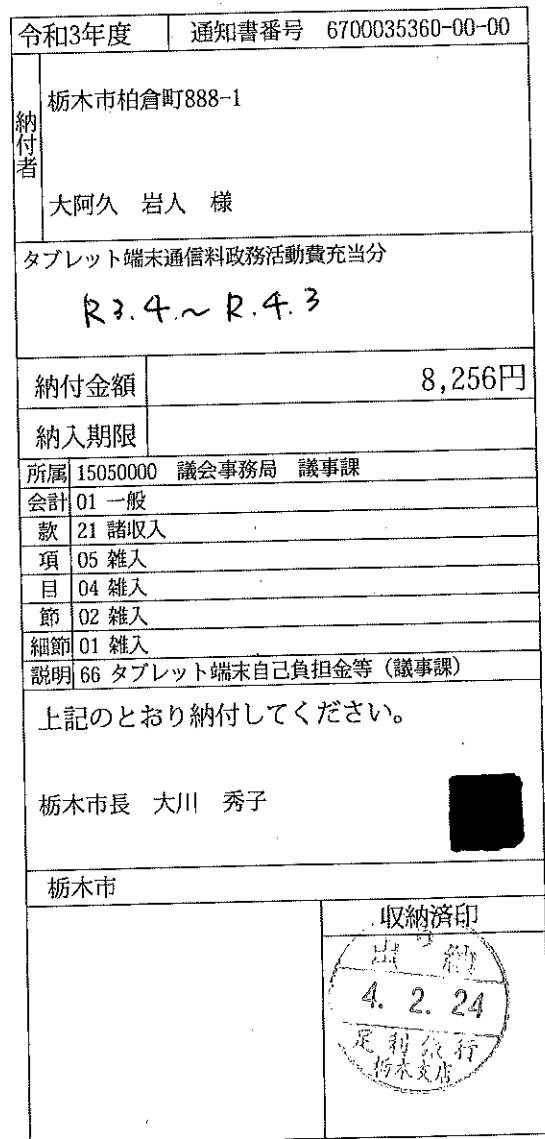 令和3年度 通知書番号 6700035360-00-00
納付者
栃木市柏倉町888-1
大阿久 岩人 様
タブレット端末通信料政務活動費充当分
R3.4.~R.4.3
納付金額 8,256円
納入期限
所属 15050000 議会事務局 議事課
会計 01 一般
款 21 諸収入
項 05 雑入
目 04 雑入
節 02 雑入
細節 01 雑入
説明 66 タブレット端末自己負担金等(議事課)
上記のとおり納付してください。
栃木市長 大川 秀子
栃木市
収納済印
出納
4. 2. 24
足利銀行
栃木支店